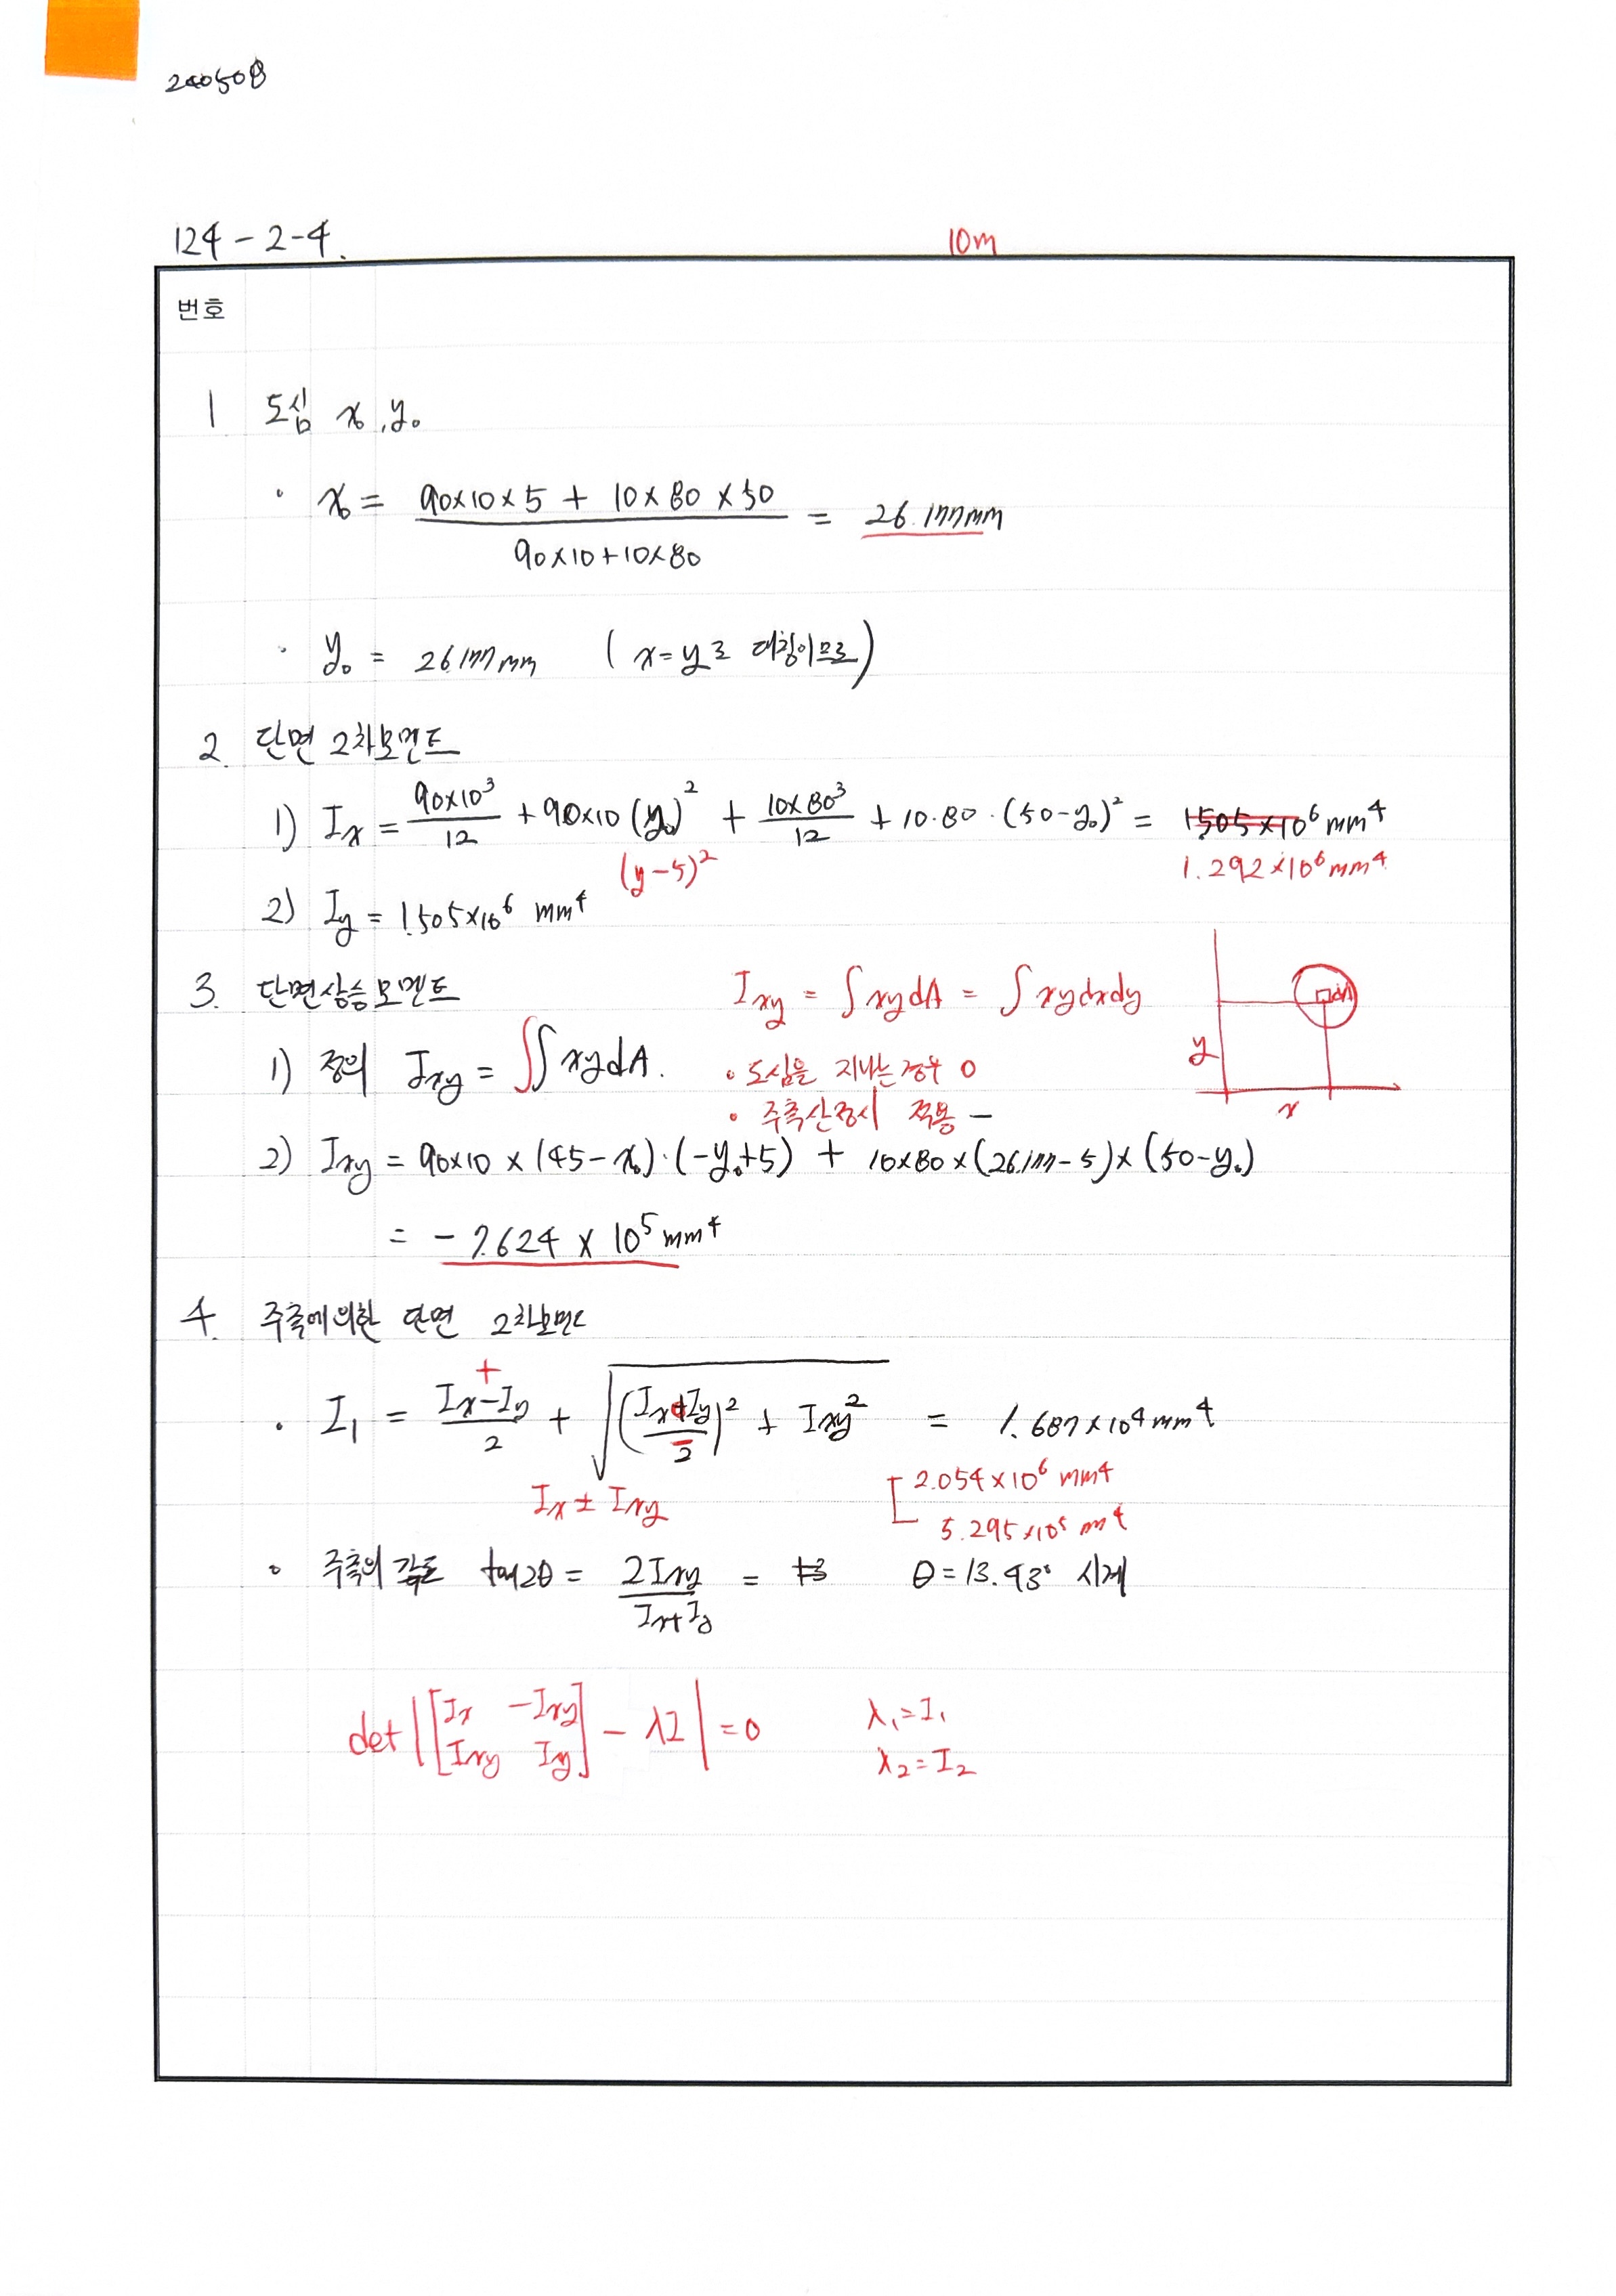 240508
124-2-4.
10m
번호
1 도심 x₀, y₀
· x₀ = (90×10×5 + 10×80×50) / (90×10+10×80) = 26.177mm
· y₀ = 26.177mm (x=y로 대칭이므로)
2. 단면 2차모멘트
1) Ix = 90×10³/12 + 90×10 (y₀)² + 10×80³/12 + 10·80·(50-y₀)² = 1505×10⁶ mm⁴
(y-5)² 1.292×10⁶ mm⁴
2) Iy = 1.505×10⁶ mm⁴
3. 단면상승모멘트 Ixy = ∫xydA = ∫xydxdy
dA
y
x
1) 정의 Ixy = ∬xydA.
· 도심을 지나는 경우 0
· 주축산정시 적용 —
2) Ixy = 90×10×(45-x₀)·(-y₀+5) + 10×80×(26.177-5)×(50-y₀)
= -7.624 × 10⁵ mm⁴
4. 주축에 의한 단면 2차모멘트
+
· I₁ = (Ix-Iy)/2 + √(((Ix+Iy)/2)² + Ixy²) = 1.687×10⁴ mm⁴
Ix ± Ixy
2.054×10⁶ mm⁴
5.295×10⁵ mm⁴
· 주축의 각도 tan2θ = 2Ixy/(Ix+Iy) = θ=13.43° 시계
det|[Ix -Ixy
Ixy Iy] - λI| = 0
λ₁=I₁
λ₂=I₂